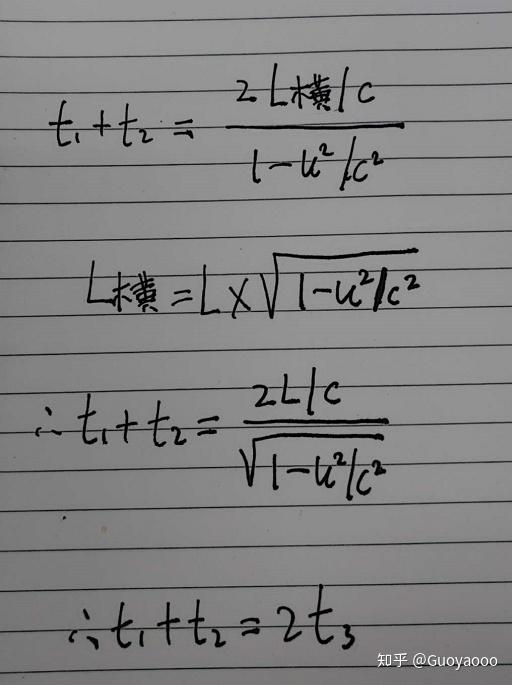 t₁+t₂ = (2L横/c)/(1-u²/c²)
L横 = L×√(1-u²/c²)
∴ t₁+t₂ = (2L/c)/√(1-u²/c²)
∴ t₁+t₂ = 2t₃
知乎 @Guoyaooo